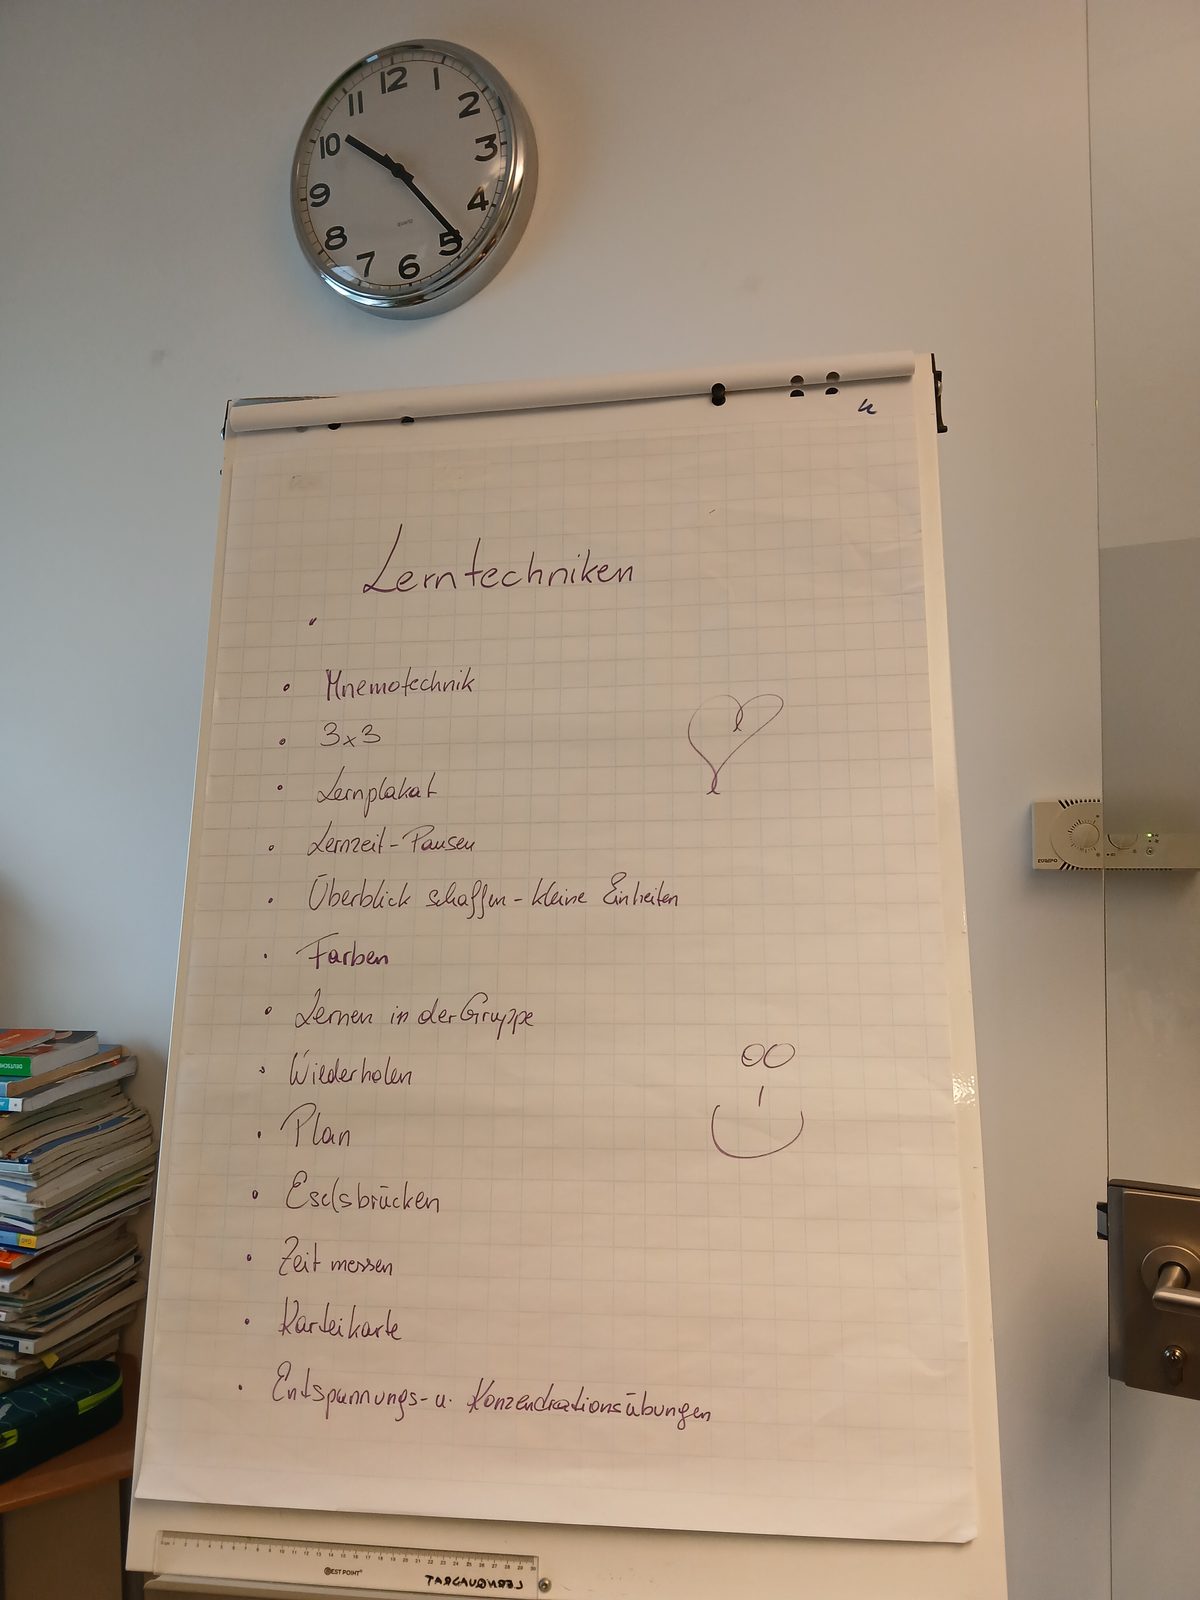 12
1
2
3
4
5
6
7
8
9
10
11
QUARTZ
Lerntechniken
•
• Mnemotechnik
• 3x3
• Lernplakat
• Lernzeit - Pausen
• Überblick schaffen - kleine Einheiten
• Farben
• Lernen in der Gruppe
• Wiederholen
• Plan
• Eselsbrücken
• Zeit messen
• Karteikarte
• Entspannungs- u. Konzentrationsübungen
DEUTSCH
BEST POINT
LERNQUADRAT